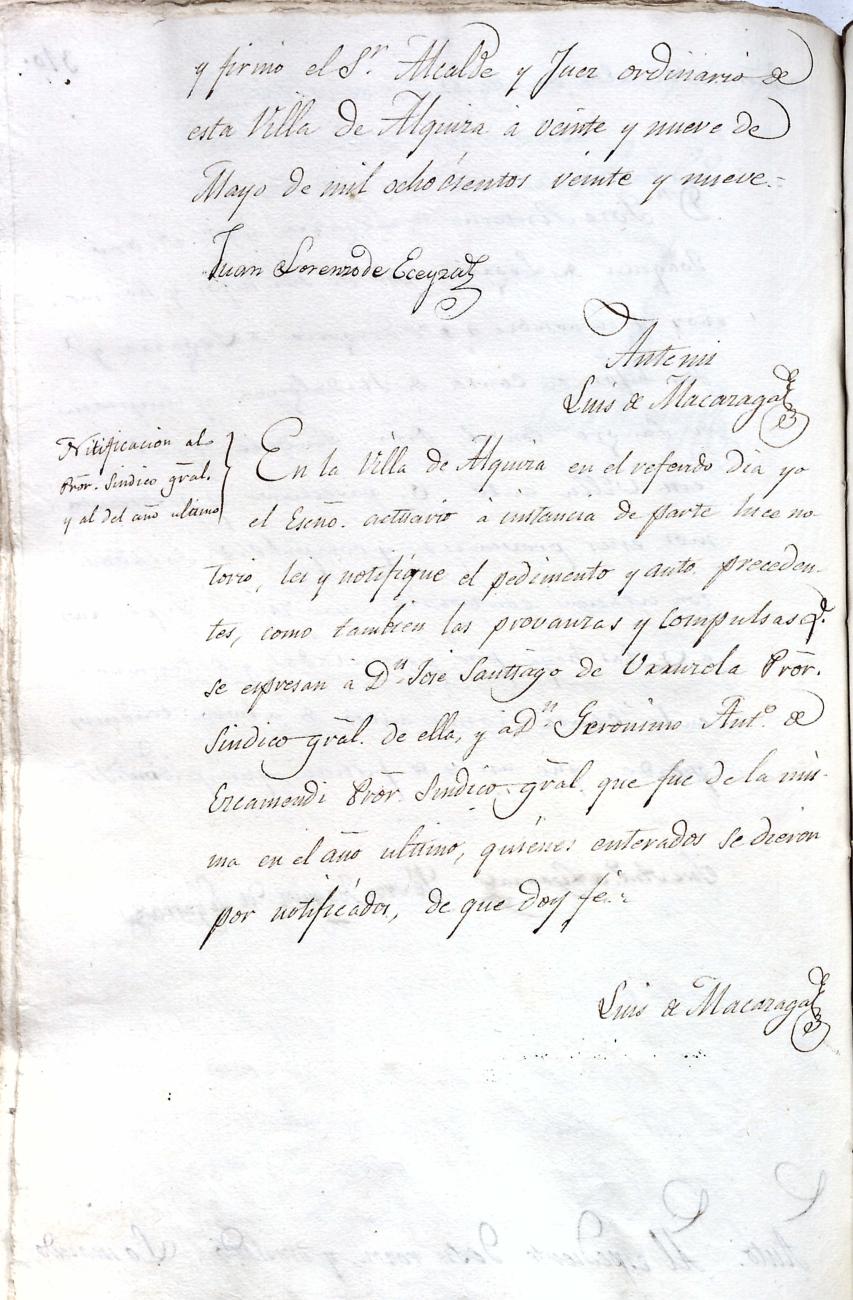 y firmó el Sr. Alcalde y Juez ordinario de
esta Villa de Alquiza à veinte y nueve de
Mayo de mil ochocientos veinte y nueve.=
Juan Lorenzo de Eceyza
Antemi
Luis de Macazaga
Nitificacion al
Pror. Sindico gral.
y al del año ultimo
En la Villa de Alquiza en el referido dia yo
el Esñō. actuario a instancia de parte hice no
torio, lei y notifiqué el pedimento y auto preceden-
tes, como tambien las provanzas y compulsas q.
se espresan a Dn. José Santiago de Urruzola Pror.
Sindico gral. de ella, y a Dn. Geronimo Anto. de
Ercamendi Pror Sindico gral que fue de la mis-
ma en el año ultimo, quienes enterados se dieron
por notificados, de que doy fe.=
Luis de Macazaga